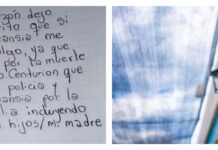 azón dejo
rito que si
ransia me
algo, ya que
per ta mberle
o Centurion que
policia y
ransia por la
lia incluyendo
hijos/mi madre